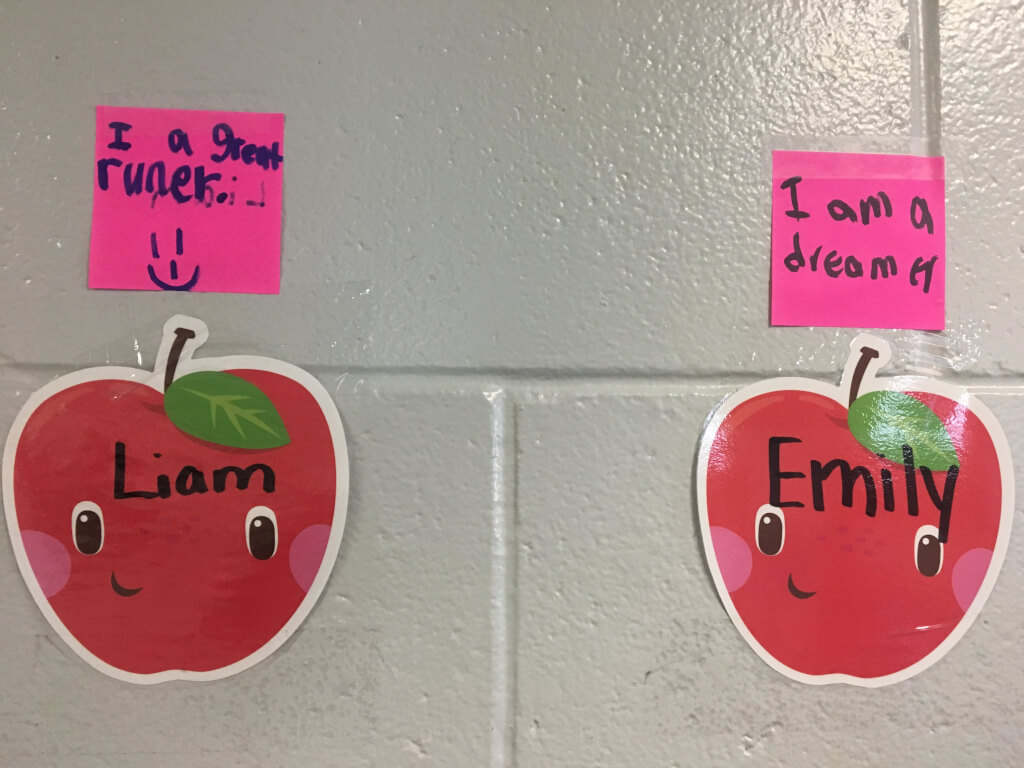 I a great
runer.
Liam
I am a
dreamer
Emily